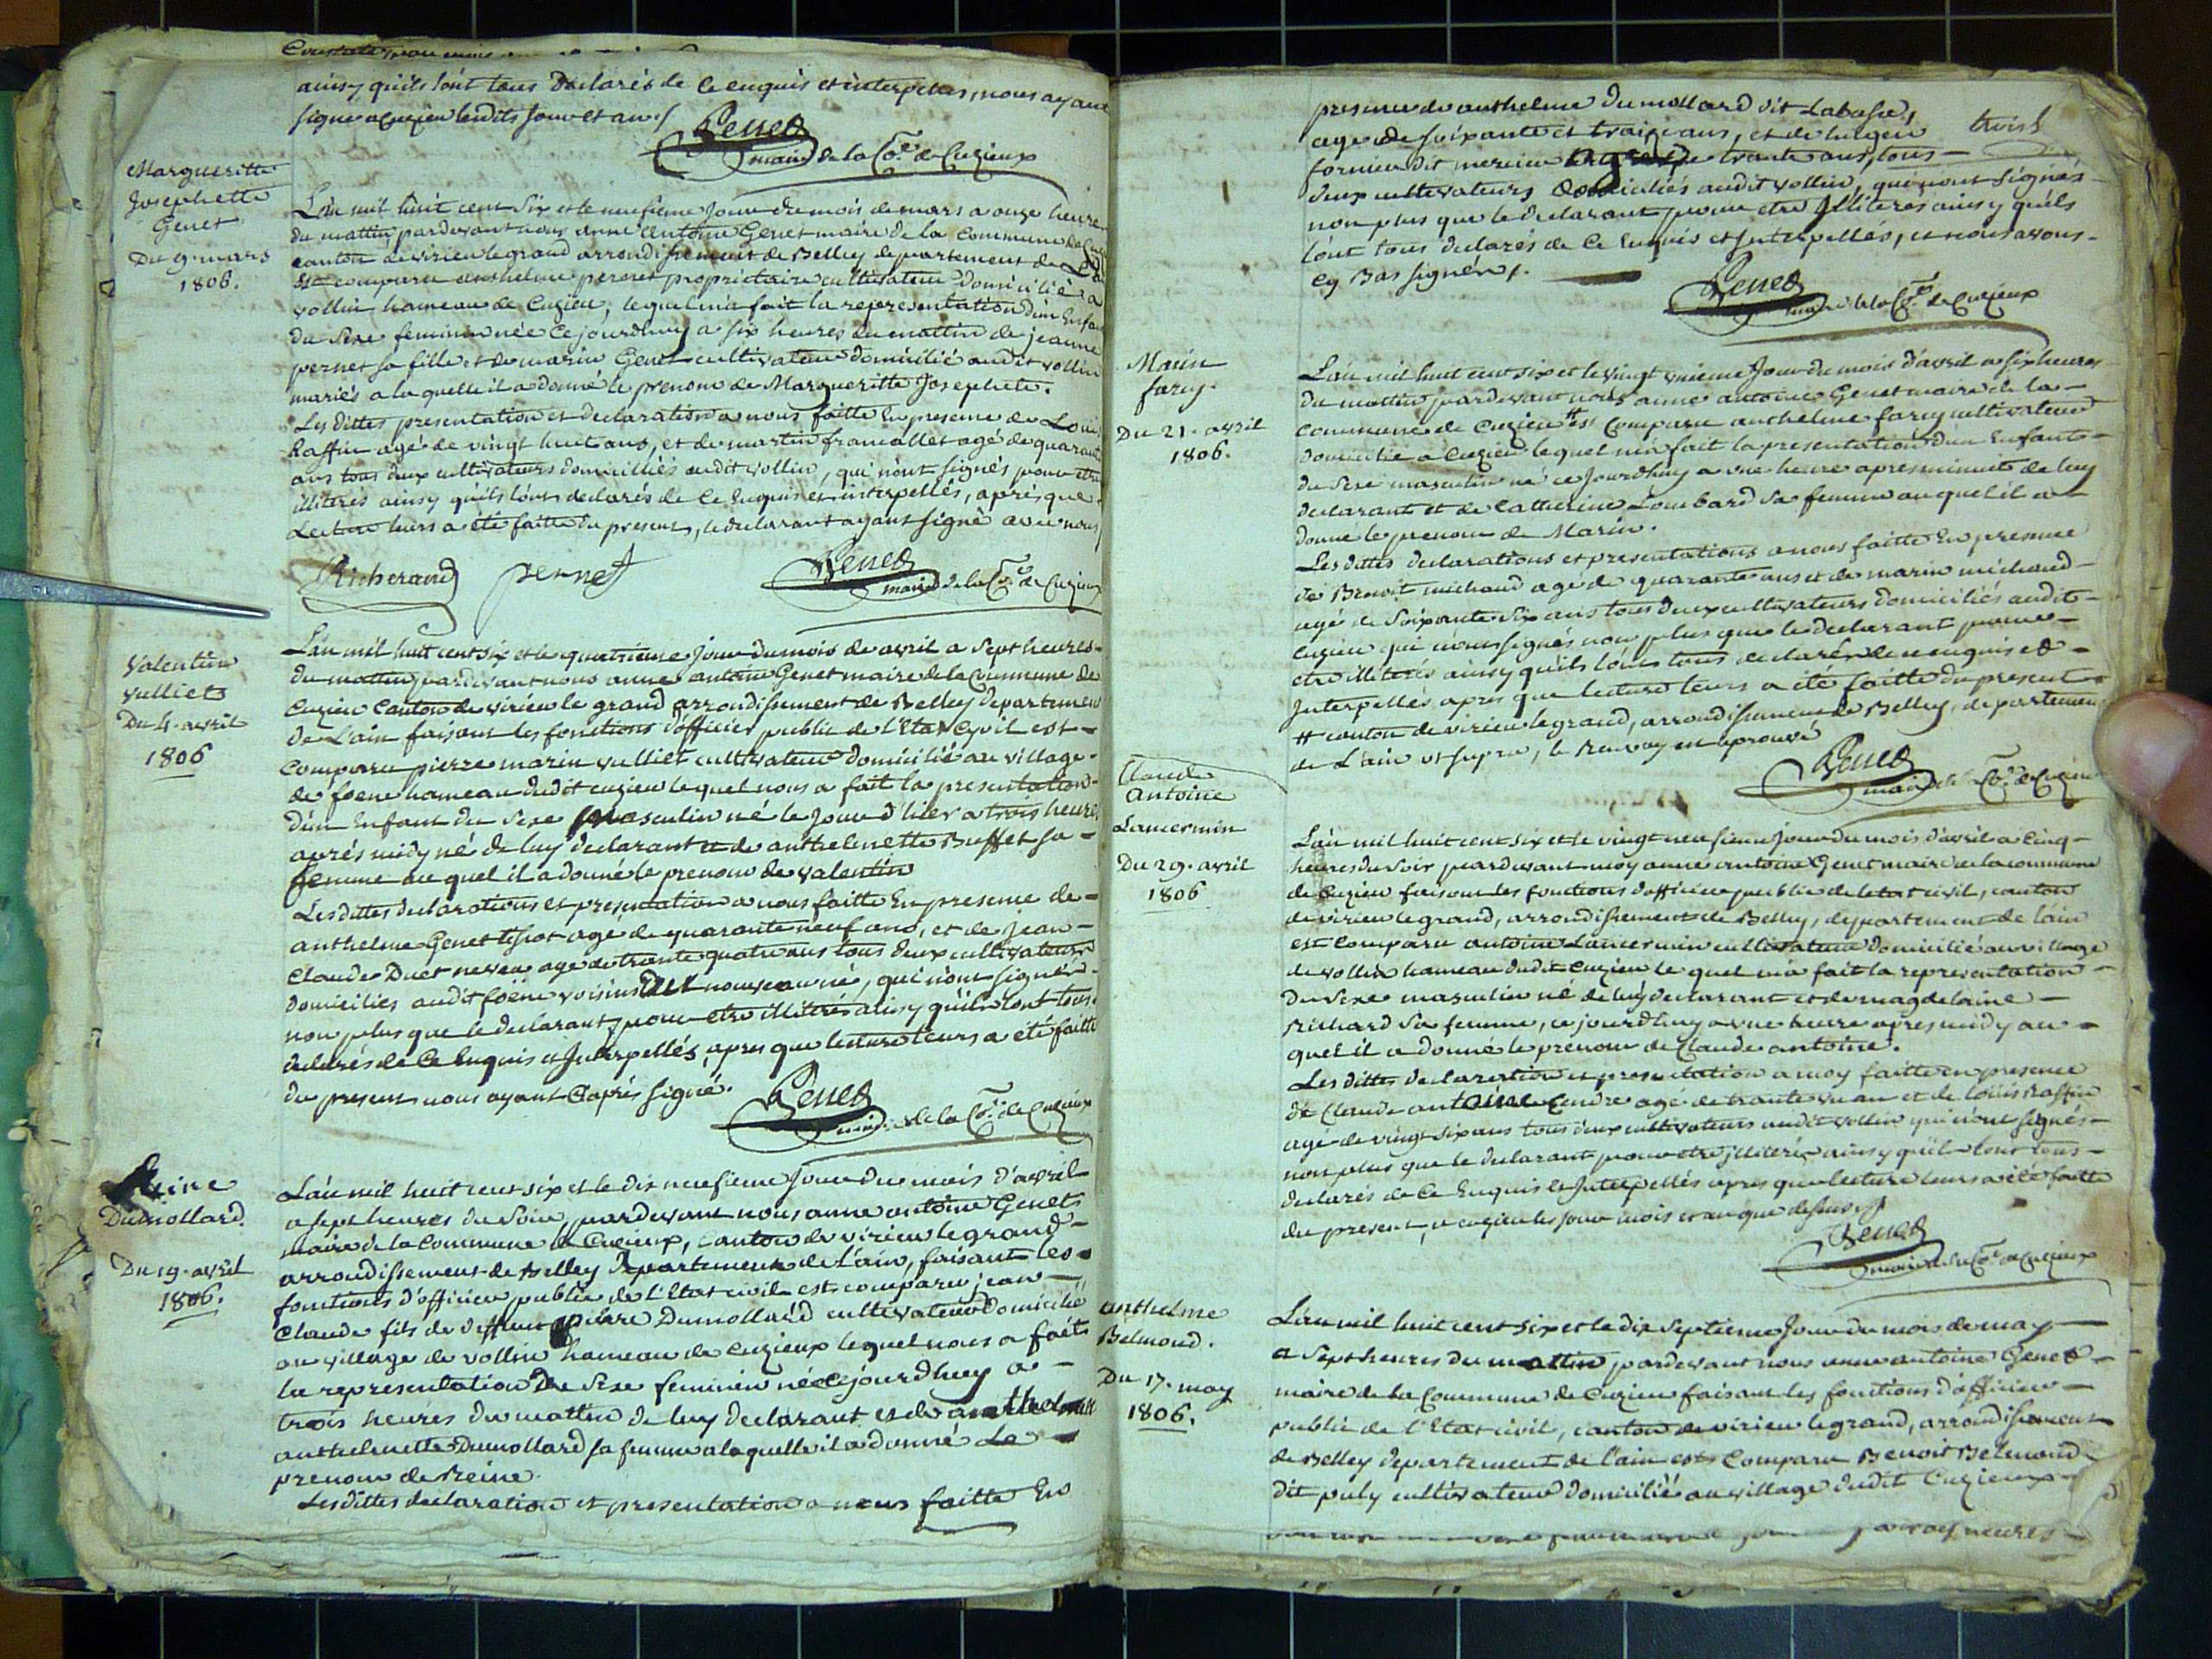 ainsy qu'ils l'ont tous déclarés de ce enquis et interpellés, nous ayant
signé a Cuzieu lesdits jour et an
Genet
maire de la Co.ne de Cuzieux
Margueritte
Josephette
Genet
Du 9. mars
1806.
L'an mil huit cent six et le neufieme jour du mois de mars a onze heures
du mattin, pardevant nous anne antoine Genet maire de la commune de
canton de virieu le grand arrondissement de Belley departement de
est comparu anthelme pernet propriétaire cultivateur domicilié a
vollin hameau de Cuzieu, lequel m'a fait la representation d'un Enfant
du sexe feminin née ce jourdhuy a six heures du mattin de jeanne
pernet sa fille et de marin Genet cultivateur domicilié audit vollin
mariés a laquelle il a donné le prenom de Margueritte Josephete.
Les dittes presentation et declaration a nous faitte En presence de Louis
Raffin agé de vingt huit ans, et de martin francallet agé de quarante
ans tous deux cultivateurs domiciliés audit vollin, qui n'ont signés pour etre
illiteres ainsy qu'ils l'ont declarés de ce Enquis et interpellés, après que
Lecture leurs a été faitte du present, le declarant ayant signé avec nous
Richerand pernet Genet
maire de la Co.ne de Cuzieux
Valentin
vulliet
Du 4. avril
1806
L'an mil huit cent six et le quatrieme jour du mois de avril a sept heures
du mattin pardevant nous anne antoine Genet maire de la Commune de
Cuzieu Canton de virieu le grand arrondissement de Belley departement
de L'ain faisant les fonctions d'officier public de l'Etat Cyvil est
comparu pierre marin vulliet cultivateur domicilié au village
de foene hameau dudit cuzieu lequel nous a fait la presentation
d'un Enfant du sexe masculin né le jour d'hier a trois heures
aprés midy né de luy declarant et de anthelmette Buffet sa
femme au quel il a donné le prenom de valentin
Les dittes declarations et presentation a nous faitte En presence de
anthelme Genet agé de quarante neuf ans, et de jean
Claude Duet neveu agé de trante quatre ans tous deux cultivateurs
domiciliés audit foëne voisins du nouveau né, qui n'ont signér
non plus que le declarant pour etre illiterés ainsy qu'ils l'ont tous
declarés de Ce Enquis et Interpellés, apres que lecture leurs a été faitte
du present nous ayant Ciaprés signé.
Genet
maire de la Co.ne de Cuzieux
Reine
Dumollard.
Du 19. avril
1806.
L'an mil huit cent six et le dix neufieme jour du mois d'avril
a sept heures du Soir, pardevant nous anne antoine Genet
maire de la Commune de Cuzieux, canton de virieu le grand
arrondissement de Belley Departement de l'ain, faisant les
fonctions d'officier public de l'Etat civil est comparu jean
Claude fils de deffunt pierre Dumollard cultivateur domicilié
au village de vollin hameau de Cuzieux lequel nous a fait
la representation Du Sexe feminin née cejourdhuy a
trois heures du mattin de luy declarant et de
anthelmette Dumollard sa femme a laquelle il a donné Le
prenom de Reine.
Les dittes declaration et presentation a nous faitte En
presence de anthelme Dumollard dit Labase,
age de soixante et traize ans, et de hugen
fornier dit mercier agé de trante ans, tous
deux cultivateurs domiciliés audit vollin, qui n'ont signés
non plus que le declarant pour etre Illiteres ainsy qu'ils
l'ont tous declarés de Ce Enquis et Interpellés, et nous avons
cy Bas signér.
Genet
maire de la Co.ne de Cuzieux
Marin
farcy.
Du 21. avril
1806.
L'an mil huit cent six et le vingt unieme jour du mois d'avril a six heures
du mattin pardevant nous anne antoine Genet maire de la
commune de Cuzieu # est Comparu anthelme farcy cultivateur
domicilié a Cuzieu lequel m'a fait la presentation d'un Enfant
du sexe masculin né ce jourdhuy a une heure apres minuit de luy
declarant et de Catherine Lombard sa femme au quel il a
donné le prenom de Marin.
Les dittes declarations et presentations a nous faitte En presence
de Benoit michaud agé de quarante ans et de marin michaud
agé de soixante six ans tous deux cultivateurs domiciliés audit
Cuzieu qui n'ont signés non plus que le declarant pour
etre illiterés ainsy qu'ils l'ont tous declarér de ce enquis et
Interpellés apres que lecture leurs a été faitte du present
# canton de virieu le grand, arrondissement de Belley, departement
de L'ain ut supra, le Renvoy est aprouvé
Genet
maire de la Co.ne de Cuzieux
Claude
Antoine
Lancermin
Du 29. avril
1806
L'an mil huit cent six et le vingt neufieme jour du mois d'avril a Cinq
heures du soir pardevant moy anne antoine Genet maire de la commune
de Cuzieu faisant les fonctions d'officier public de letat civil, canton
de virieu le grand, arrondissement de Belley, departement de l'ain
est Comparu antoine Lancermin cultivateur domicilié au village
de vollin hameau dudit Cuzieu le quel m'a fait la representation
Du Sexe masculin né de luy declarant et de magdelaine
Richard sa femme, ce jourdhuy a une heure apres midy au
quel il a donné le prenom de Claude antoine.
Les dittes declaration et presentation a moy faitte en presence
de Claude antoine Cendre agé de trante un an et de louis Raffin
agé de vingt six ans tous deux cultivateurs audit vollin qui n'ont signés
non plus que le declarant pour etre jlliterés ainsy qu'il l'ont tous
declarés de Ce Enquis et Interpellés apres que lecture leurs a été faitte
du present, a cuzieu les jour mois et an que dessus
Genet
maire de la Co.ne de Cuzieux
anthelme
Belmond.
Du 17. may
1806.
L'an mil huit cent six et le dix septieme jour du mois de may
a sept heures du mattin, pardevant nous anne antoine Genet
maire de la Commune de Cuzieu faisant les fonctions d'officier
public de l'Etat civil, canton de virieu le grand, arrondissement
de Belley departement de l'ain est Comparu Benoit Belmond
dit puly cultivateur domicilié au village dudit Cuzieux